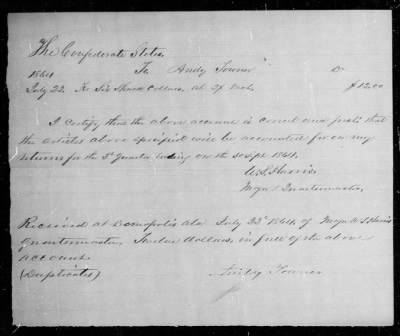 The Confederate States,
1864 To Andy Towner Dr
July 22. To Six Shuck Collars, at 2$ each $12.00
I certify that the above account is correct and just; that
the articles above specified will be accounted for on my
returns for the 3d Quarter ending on the 30 Sept 1864.
W.S. Harris
Major & Quartermaster
Received at Demopolis Ala July 22d 1864, of Major W S Harris
Quartermaster, Twelve dollars, in full of the above
account.
(Duplicates) Andy Towner